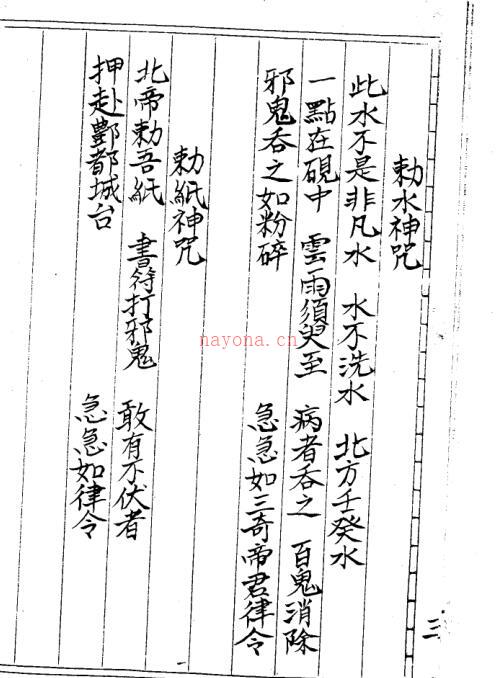 勅水神咒
此水不是非凡水　水不洗水　北方壬癸水
一點在硯中　雲雨須臾至　病者吞之　百鬼消除
邪鬼吞之如粉碎　急急如三奇帝君律令
勅紙神咒
北帝勅吾紙　書符打邪鬼　敢有不伏者
押赴酆都城台　急急如律令
三
nayona.cn